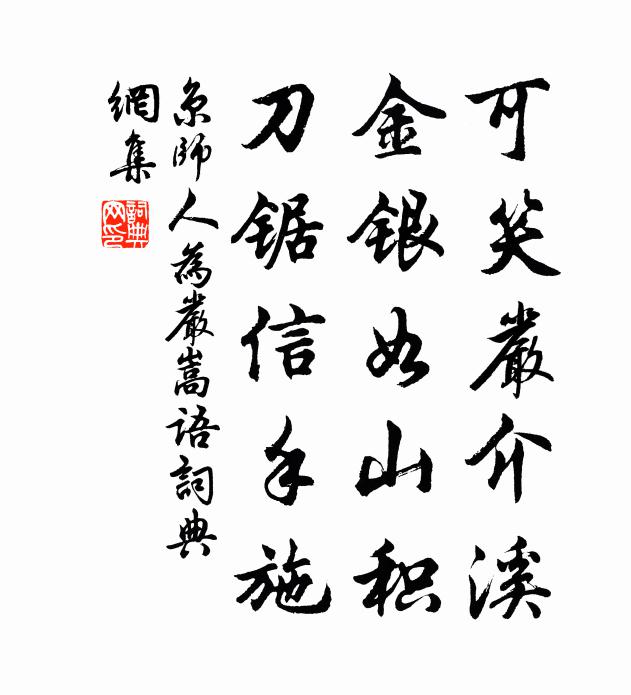 可笑嚴介溪
金銀如山积
刀锯信手施
京師人為嚴嵩語詞典
網集
詞典
网印